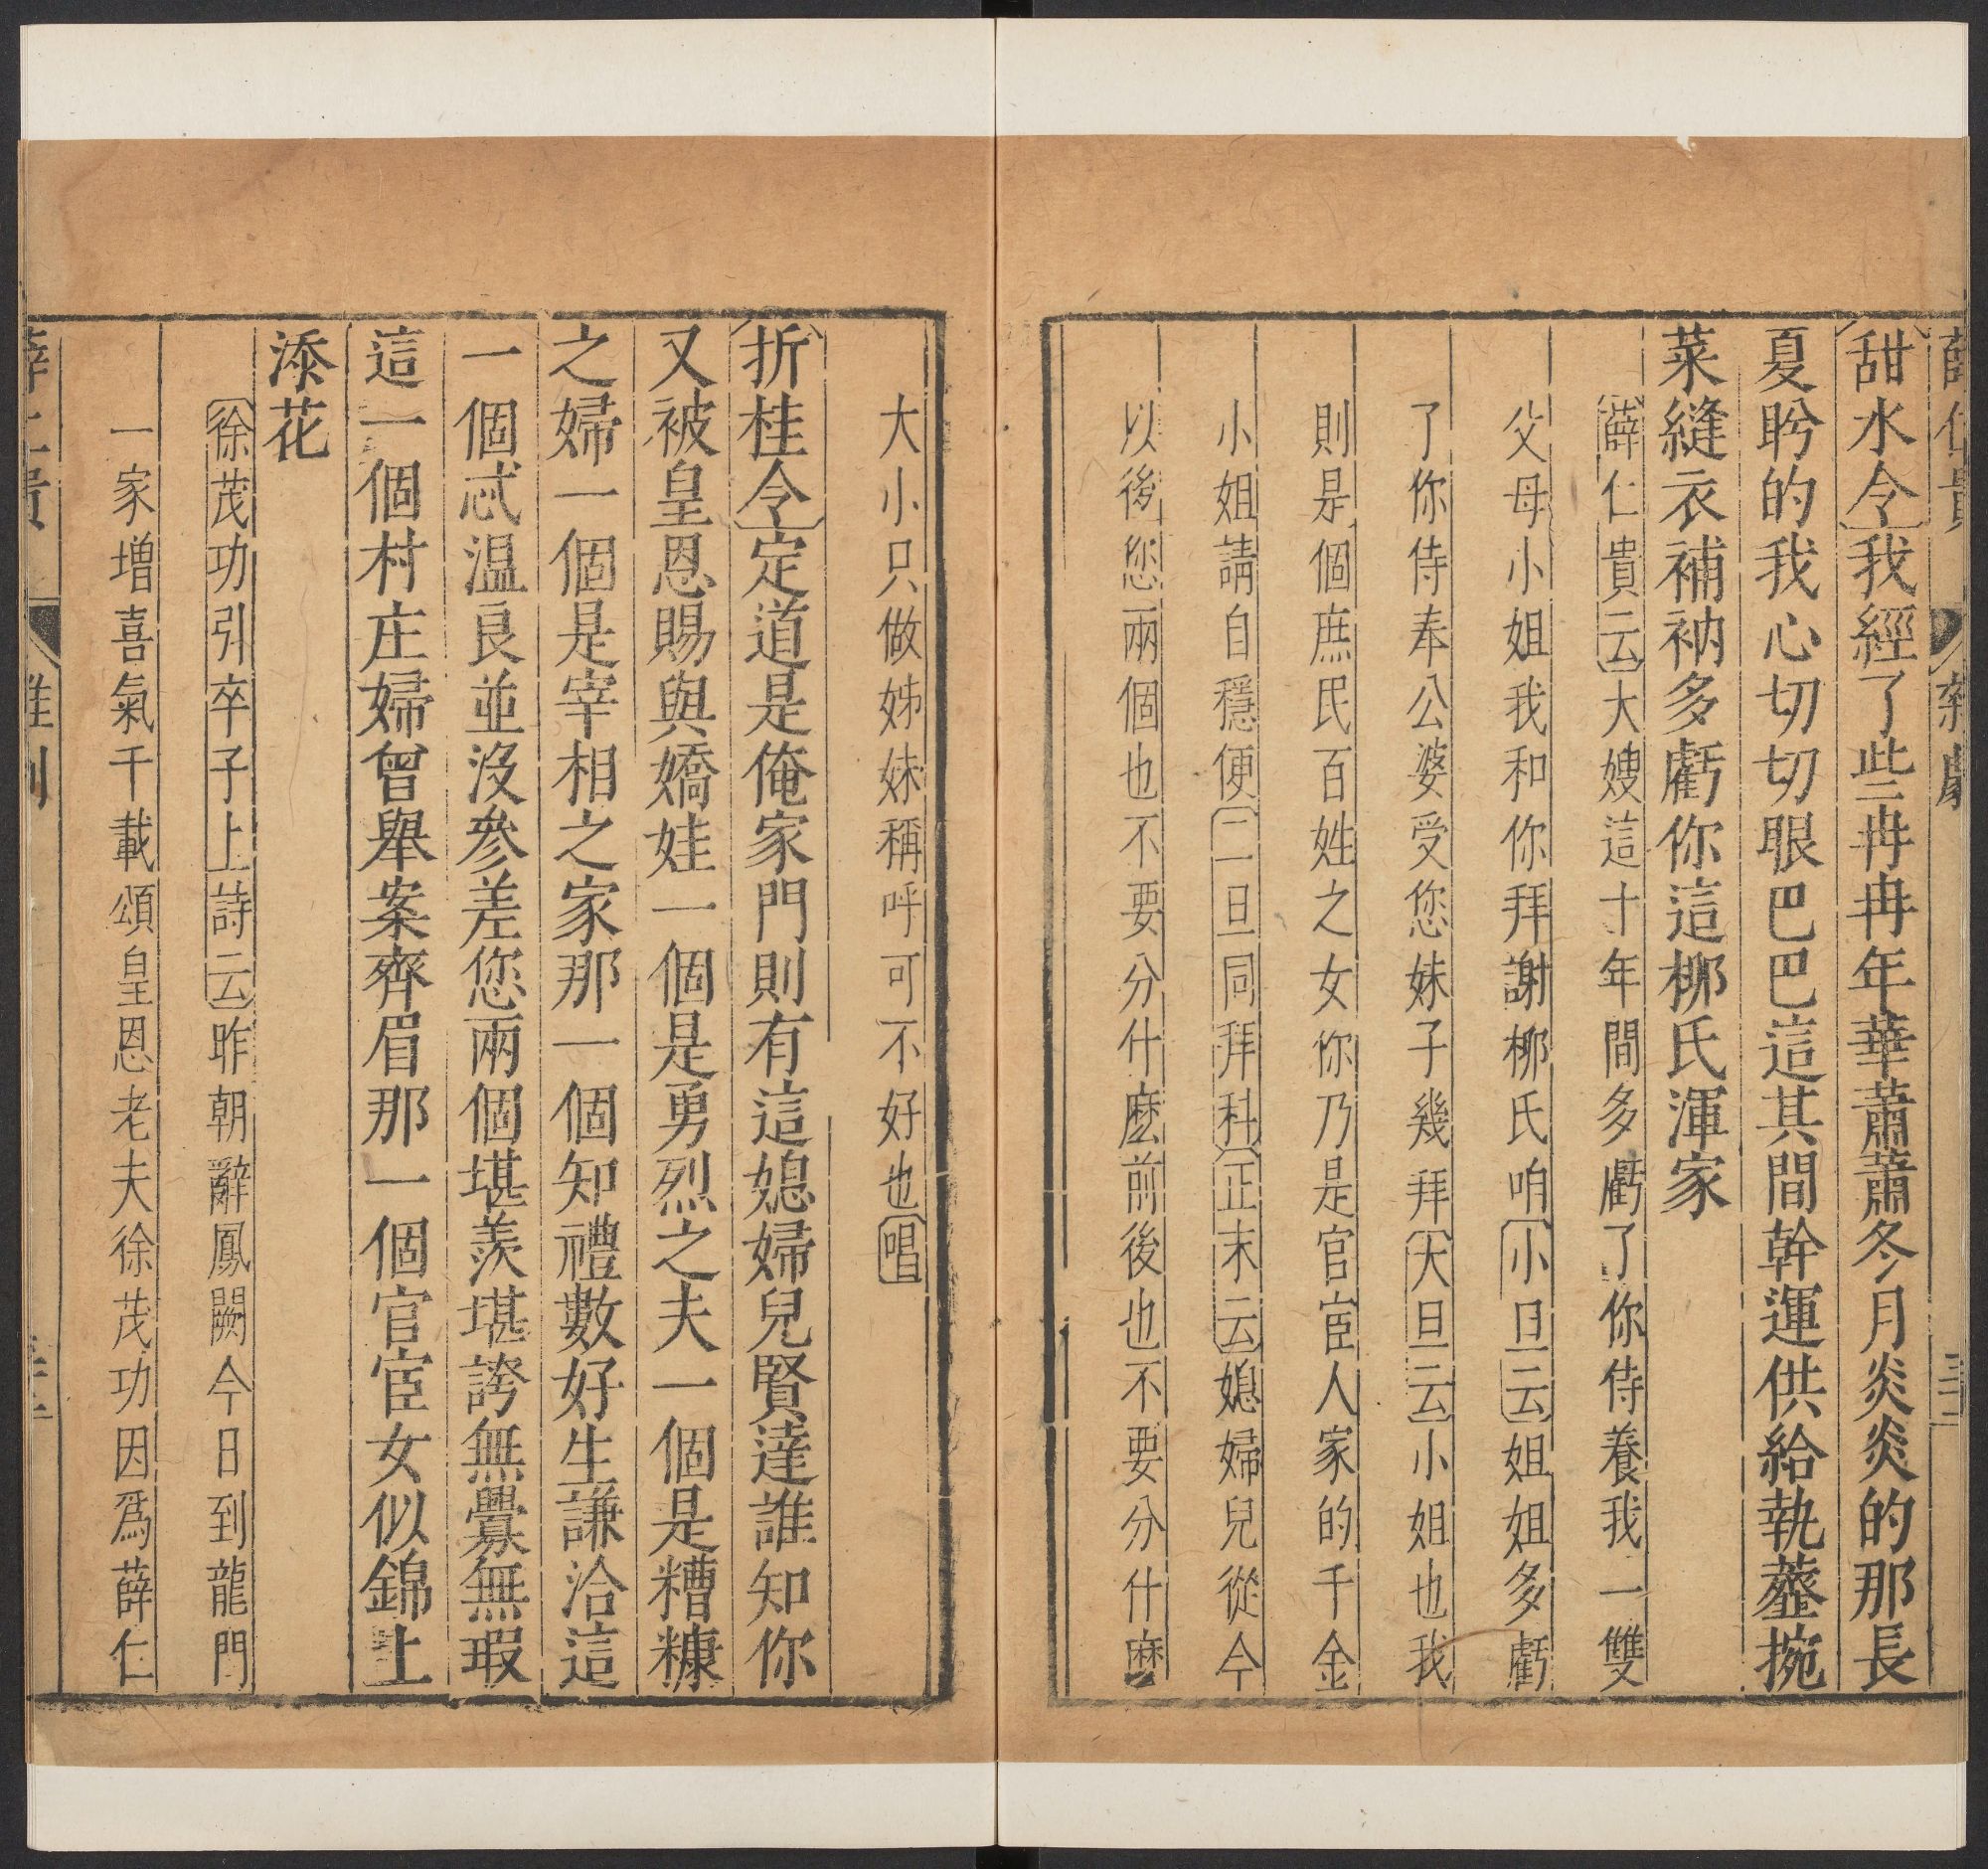 薛仁貴 雜劇 三十一
甜水令我經了些冉冉年華蕭蕭冬月炎炎的那長
夏盻的我心切切眼巴巴這其間幹運供給執虀捥
菜縫衣補衲多虧你這栁氏渾家
薛仁貴云大嫂這十年間多虧了你侍養我一雙
父母小姐我和你拜謝栁氏咱小旦云姐姐多虧
了你侍奉公婆受您妹子幾拜大旦云小姐也我
則是個庶民百姓之女你乃是官宦人家的千金
小姐請自穩便二旦同拜科正末云媳婦兒從今
以後您兩個也不要分什麽前後也不要分什麽
大小只做姊妹稱呼可不好也唱
折桂令定道是俺家門則有這媳婦兒賢達誰知你
又被皇恩賜與嬌娃一個是勇烈之夫一個是糟糠
之婦一個是宰相之家那一個知禮數好生謙洽這
一個忒温良並沒參差您兩個堪羨堪誇無釁無瑕
這一個村庄婦曾舉案齊眉那一個官宦女似錦上
添花
徐茂功引卒子上詩云昨朝辭鳳闕今日到龍門
一家增喜氣千載頌皇恩老夫徐茂功因爲薛仁